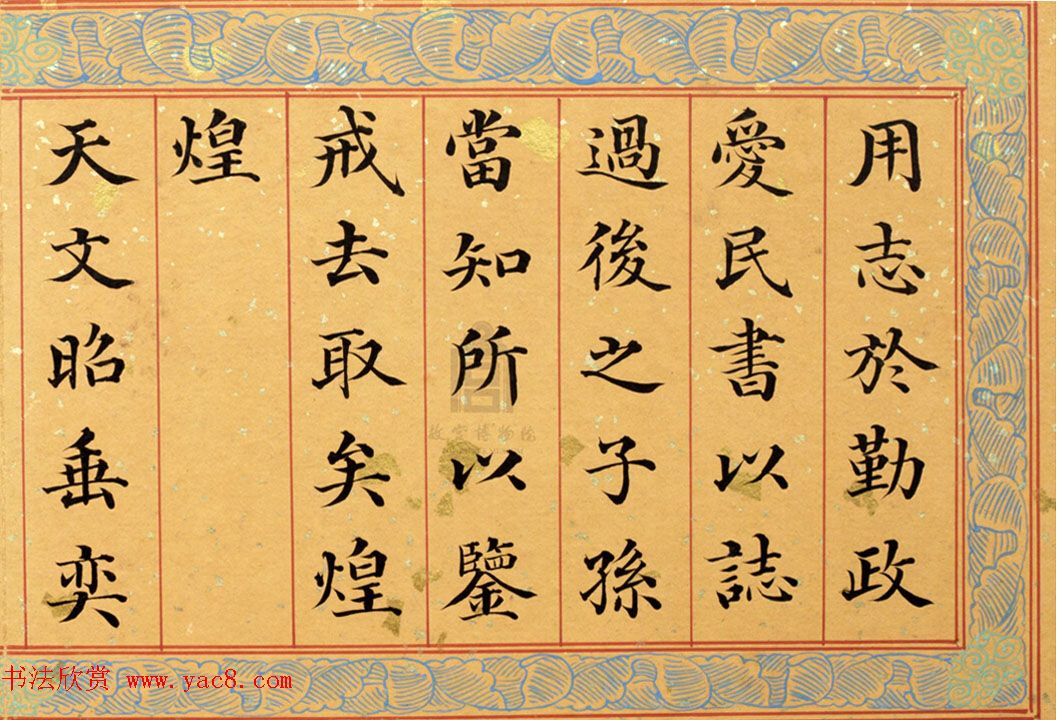 用志於勤政
愛民書以誌
過後之子孫
當知所以鑒
戒去取矣煌
煌
天文昭垂奕
故宮博物院
书法欣赏 www.yac8.com